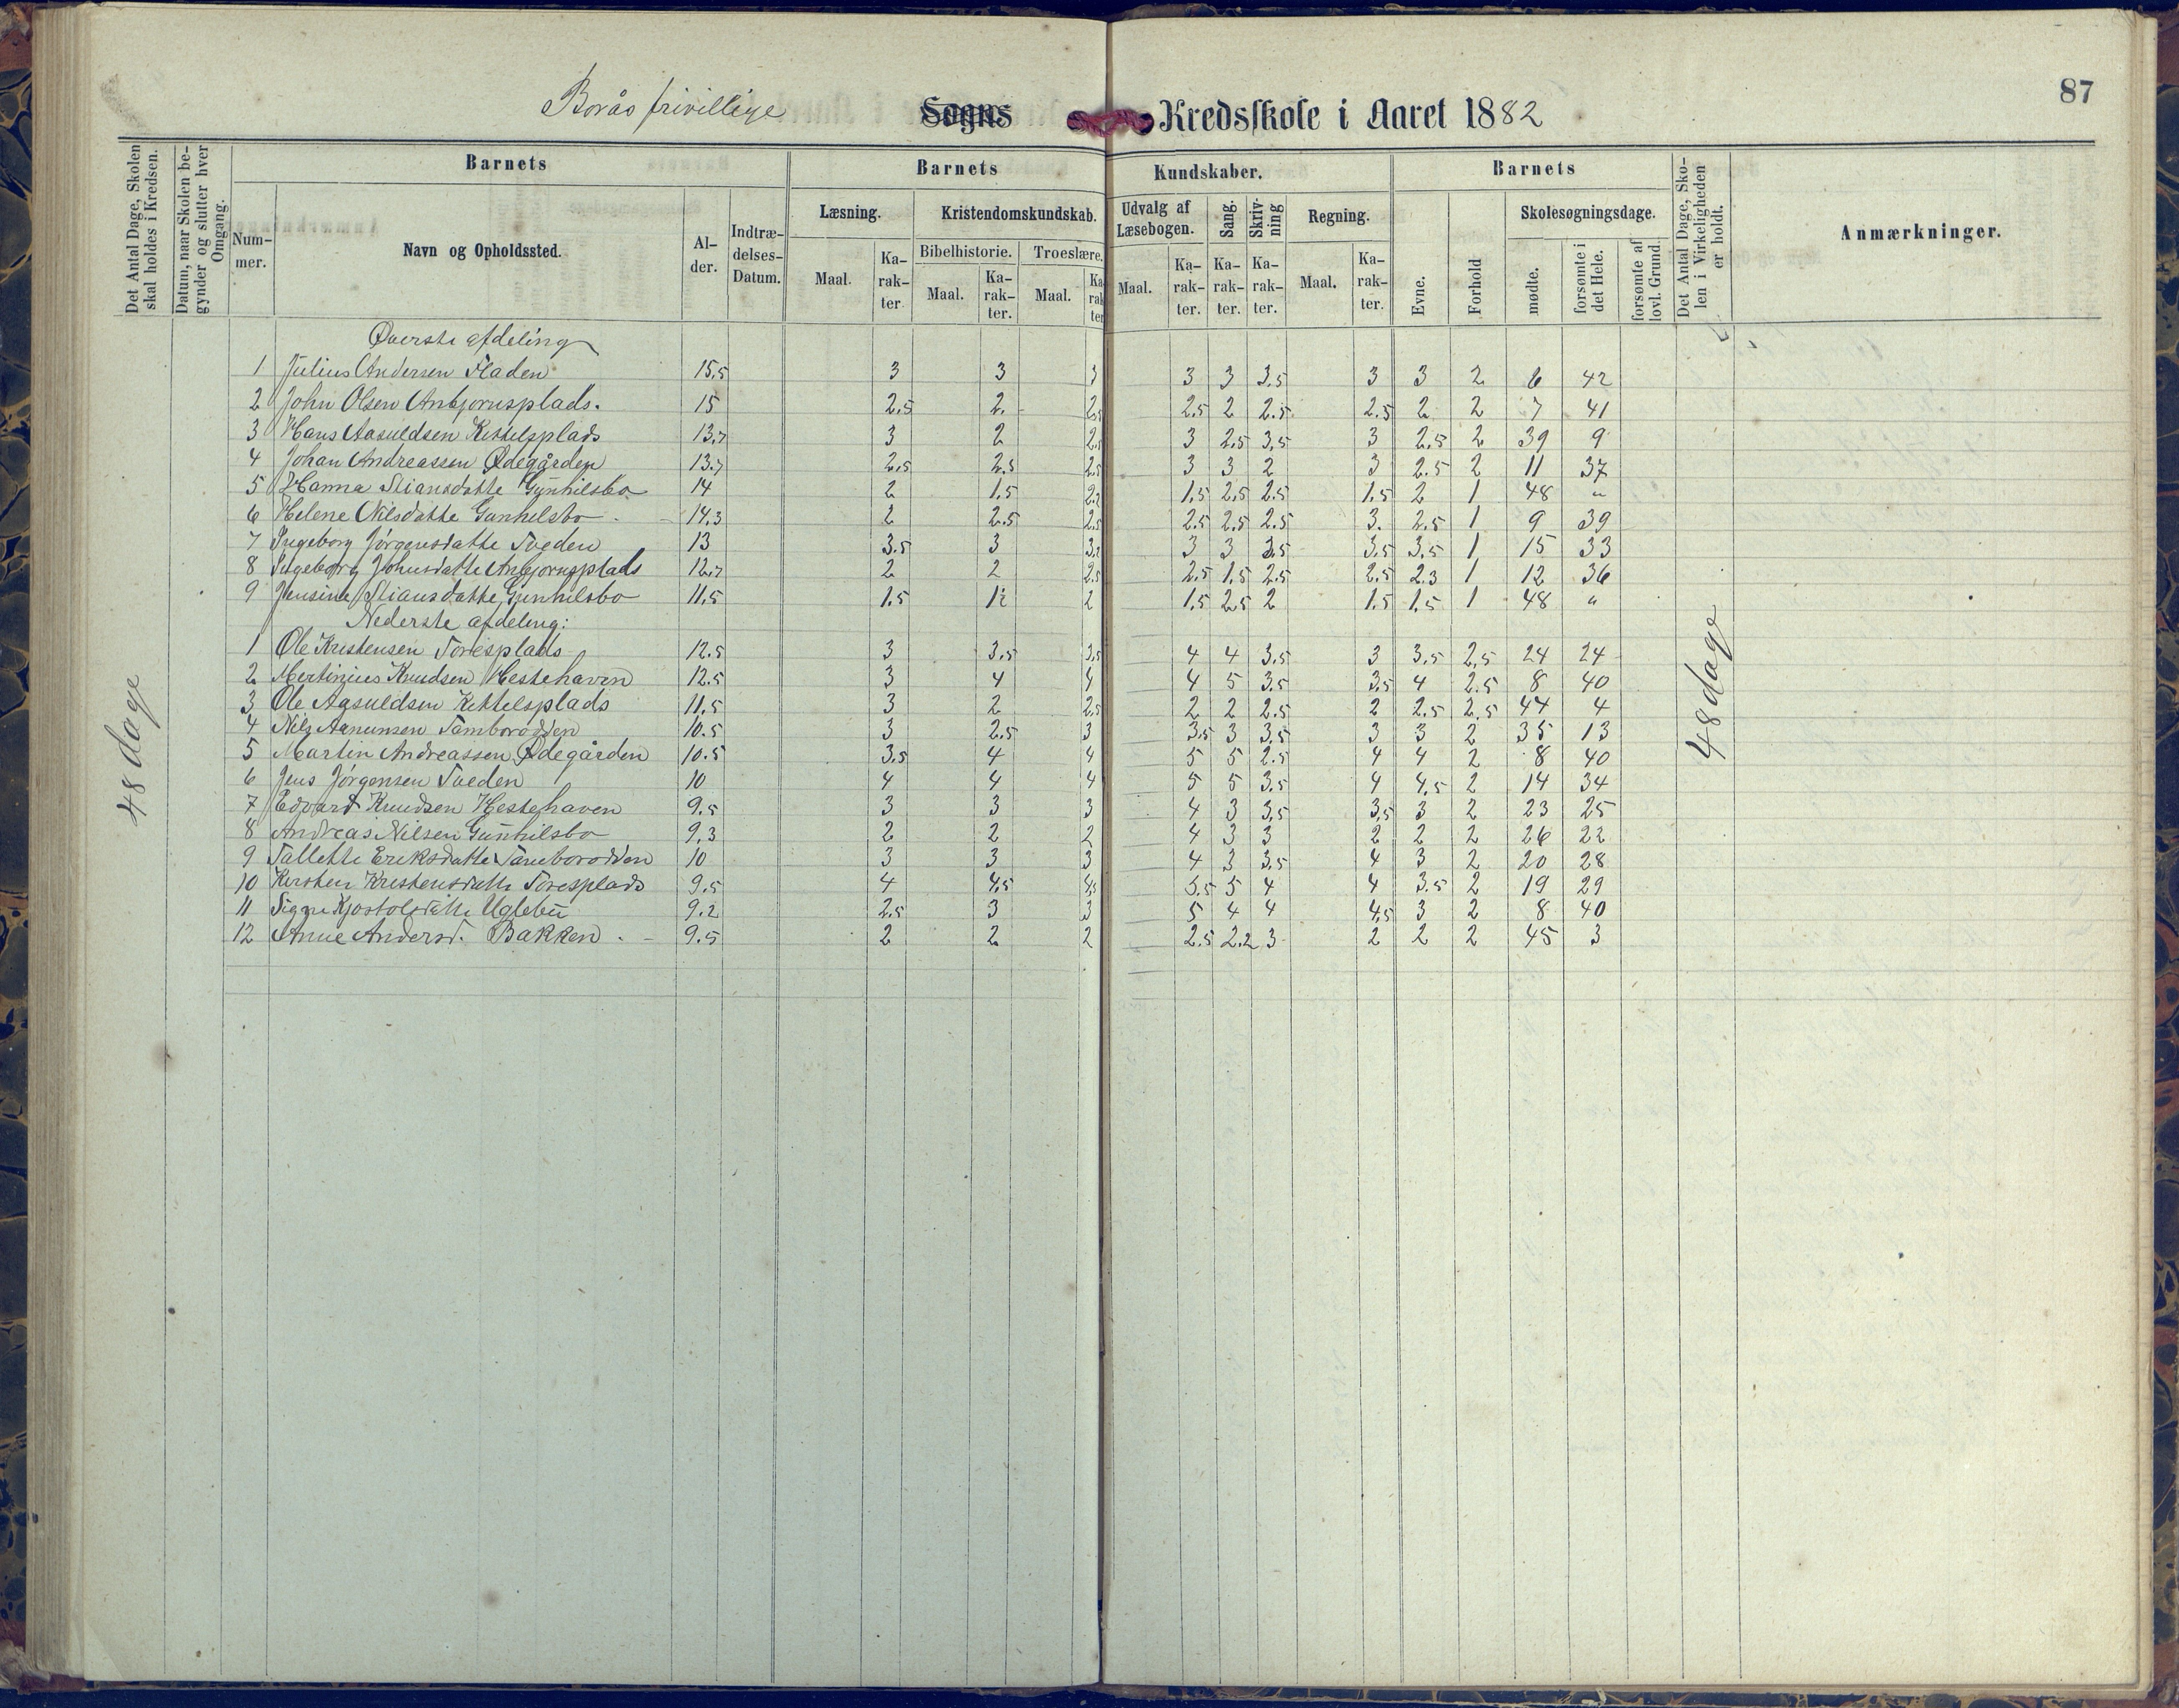 87
Borås frivillige Sogns Kredsskole i Aaret 1882
Det Antal Dage, Skolen skal holdes i Kredsen.
Datum, naar Skolen begynder og slutter hver Omgang.
Barnets
Num-
mer.
Navn og Opholdssted.
Al-
der.
Indtræ-
delses-
Datum.
Barnets Kundskaber.
Læsning.
Maal. Ka-rak-ter.
Kristendomskundskab.
Bibelhistorie. Troeslære.
Maal. Ka-rak-ter. Maal. Ka-rak-ter
Udvalg af Læsebogen.
Maal. Ka-rak-ter.
Sang. Ka-rak-ter.
Skriv-ning Ka-rak-ter.
Regning.
Maal. Ka-rak-ter.
Barnets
Evne.
Forhold
Skolesøgningsdage.
mødte.
forsømte i det Hele.
forsømte af lovl. Grund.
Det Antal Dage, Sko-
len i Virkeligheden
er holdt.
Anmærkninger.
48 dage
48 dage
Øverste afdeling
1 Julius Andersen Fladen 15,5 3 3 3 3 3 3,5 3 3 2 6 42
2 John Olsen Anbjørnsplads. 15 2,5 2. 2,5 2,5 2 2.5 2.5 2 2 7 41
3 Hans Aasuldsen Kittelsplads 13,7 3 2 2,5 3 2,5 3,5 3 2,5 2 39 9
4 Johan Andreassen Ødegården 13.7 2,5 2.5 2,5 3 3 2 3 2.5 2 11 37
5 Hanna Stiansdatte Gunhilsbo 14 2 1.5 1,5 2,5 2.5 1,5 2 1 48 "
6 Helene Nilsdatte Gunhilsbo 14,3 2 2.5 2,5 2.5 2,5 2.5 3. 2.5 1 9 39
7 Ingeborg Jørgensdatte Tveden 13 3.5 3 3 3 3,5 3.5 3,5 1 15 33
8 Ingeborg Johnsdatte Anbjørnsplads 12,7 2 2 2.5 2,5 1,5 2,5 2,5 2.3 1 12 36
9 Jensine Stiansdatte Gunhilsbo 11,5 1.5 2 1,5 2,5 2 1.5 1,5 1 48 "
Nederste afdeling:
1 Ole Kristensen Toresplads 12.5 3 3,5 3,5 4 4 3,5 3 3,5 2,5 24 24
2 Mertinius Knudsen Hestehaven 12.5 3 4 4 4 5 3.5 3,5 4 2.5 8 40
3 Ole Aasuldsen Kittelsplads 11,5 3 2 2,5 2 2 2.5 2 2.5 2,5 44 4
4 Nils Aanunsen Tamborodden 10.5 3 2.5 3 3,5 3 3,5 3 3 2 35 13
5 Martin Andreassen Ødegården 10.5 3.5 4 4 5 5 2.5 4 4 2 8 40
6 Jens Jørgensen Tveden 10 4 4 4 5 5 3,5 4 4,5 2 14 34
7 Edvard Knudsen Hestehaven 9.5 3 3 3 4 3 3,5 3,5 3 2 23 25
8 Andreas Nilsen Gunhilsbo 9,3 2 2 2 4 3 3 2 2 2 26 22
9 Tallette Eriksdatte Tamborodden 10 3 3 3 4 3 3,5 4 3 2 20 28
10 Kirsten Kristensdatte Toresplads 9.5 4 4,5 4,5 5.5 5 4 4 3.5 2 19 29
11 Signe Kjostolsdatte Uglebu 9.2 2.5 3 3 5 4 4 4,5 3 2 8 40
12 Anne Andersd. Bakken 9.5 2 2 2 2.5 2.2 3 2 2 2 45 3